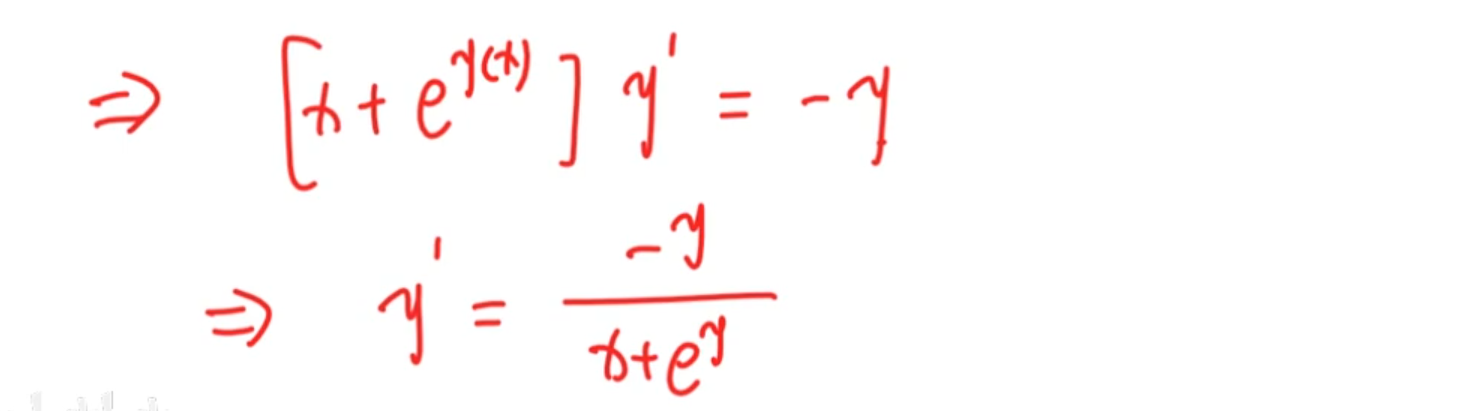 ⇒ [x + e^{y(x)}] y' = -y
⇒ y' = \frac{-y}{x+e^y}